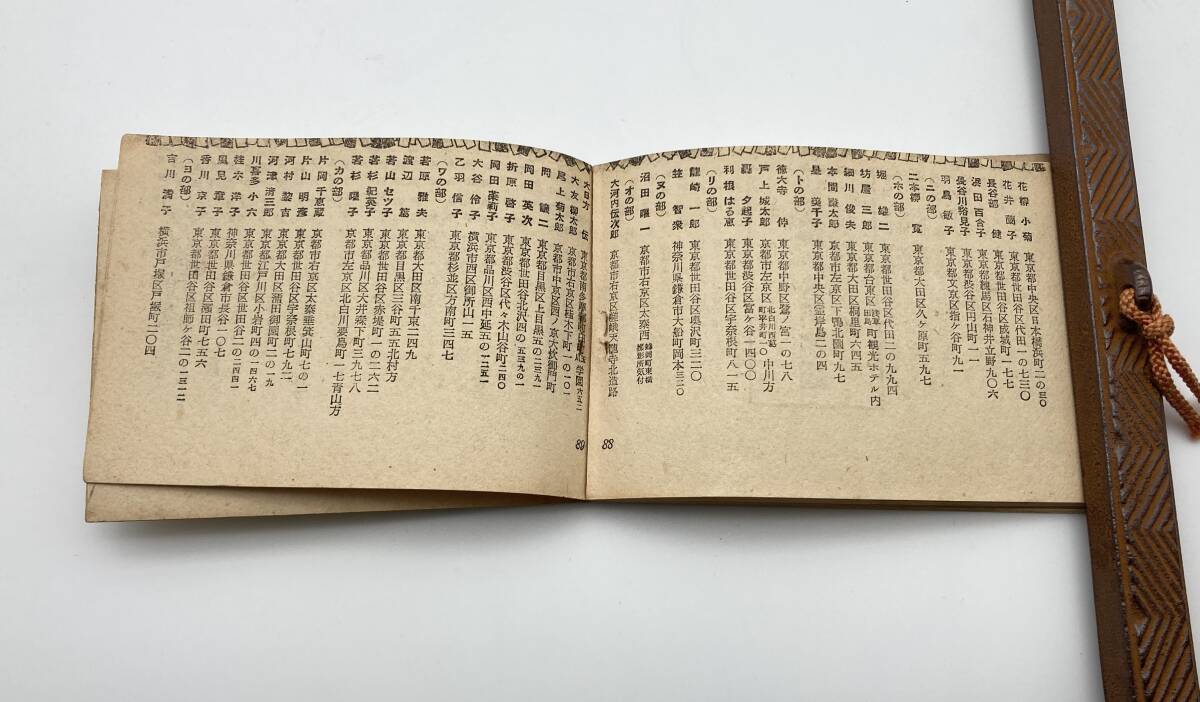 花柳小菊 東京都中央区日本橋浜町二の三〇
花井蘭子 東京都世田谷区代田一の七三〇
長谷部健 東京都世田谷区成城町一七七
浪田百合子 東京都練馬区石神井立野九〇六
長谷川裕見子 東京都渋谷区円山町一一
羽鳥敏子 東京都文京区指ヶ谷町九七
(ニの部)
二本柳寛 東京都大田区久ヶ原町五九七
(ホの部)
堀雄二 東京都世田谷区代田二の九九四
坊屋三郎 東京都台東区浅草田島町観光ホテル内
細川俊夫 東京都大田区桐里町六四五
本間謙太郎 京都市左京区下鴨北園町九七
星美千子 東京都中央区霊岸島二の四
(トの部)
徳大寺伸 東京都中野区鷺ノ宮一の七八
戸上城太郎 京都市左京区北白川西蔦町平井町一〇中川方
轟夕起子 東京都世田谷区富ヶ谷一四〇〇
利根はる恵 東京都世田谷区宇奈根町八一五
(リの部)
龍崎一郎 東京都世田谷区奥沢町三二〇
笠智衆 神奈川県鎌倉市大船町岡本三三〇
(ヌの部)
沼田曜一 京都市右京区太秦西蜂岡町東横撮影所気付
(オの部)
大河内伝次郎 京都市右京区嵯峨天竜寺北造路
88
大日方伝
大友柳太郎 京都市右京区桂木下町一の一〇一
尾上菊太郎 京都市中京区西ノ京大炊御門町
岡譲二 東京都目黒区上目黒五の二三九一
岡田英次 東京都世田谷北沢四の五三九の一
折原啓子 東京都渋谷区代々木山谷町二四〇
岡田茉莉子 東京都品川区西中延五の一二五一
大谷伶子 横浜市西区御所山一五
乙羽信子 東京都杉並区方南町三四七
(ワの部)
若原雅夫 東京都大田区南千束一二九
渡辺篤 東京都目黒区三谷町五五北村方
若山セツ子 東京都世田谷区赤堤町一の二六二
若杉紀英子 東京都品川区大井森下町三九七八
若杉曜子 京都市左京区北白川要島町一七青山方
(カの部)
片岡千恵蔵 京都市右京区太秦垂箕山町七の一
片山明彦 東京都世田谷区宇奈根町七九二
河村黎吉 東京都大田区蒲田御園二の一九
河津清三郎 東京都江戸川区小岩町四の一四六七
川喜多小六 東京都世田谷区世田谷二の二四四一
桂木洋子 神奈川県鎌倉市長谷一〇七
風見章子 東京都世田谷区瀬田町七五六
香川京子 東京都世田谷区祖師ヶ谷二の一三二二
(ヨの部)
吉川満子 横浜市戸塚区戸塚町二〇四
89